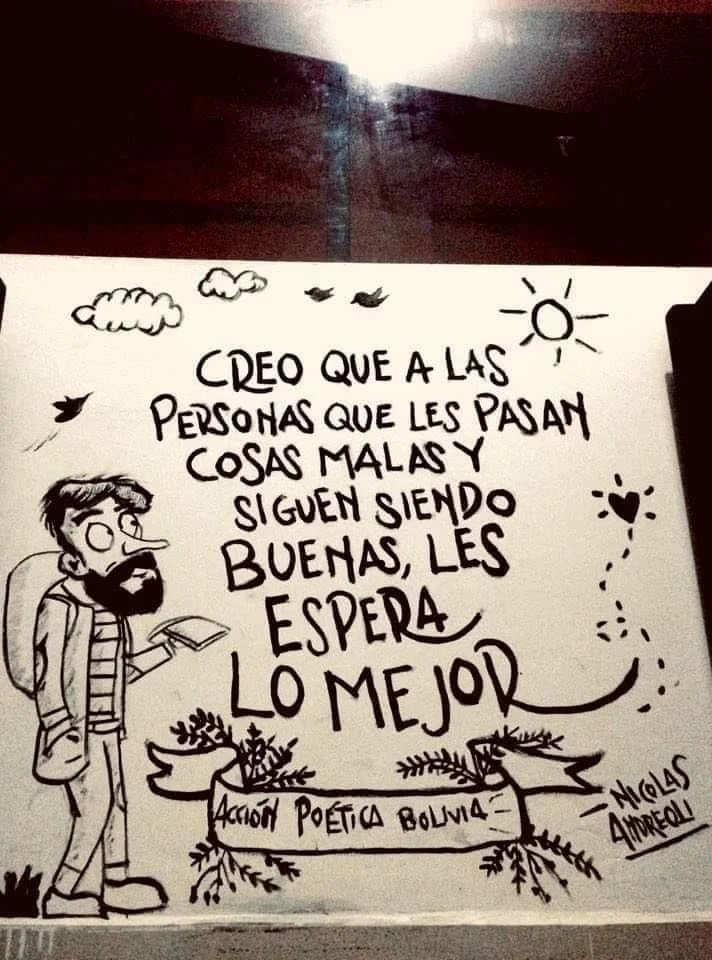 CREO QUE A LAS
PERSONAS QUE LES PASAN
COSAS MALAS Y
SIGUEN SIENDO
BUENAS, LES
ESPERA
LO MEJOR
ACCIÓN POÉTICA BOLIVIA
NICOLAS
ANDREOLI